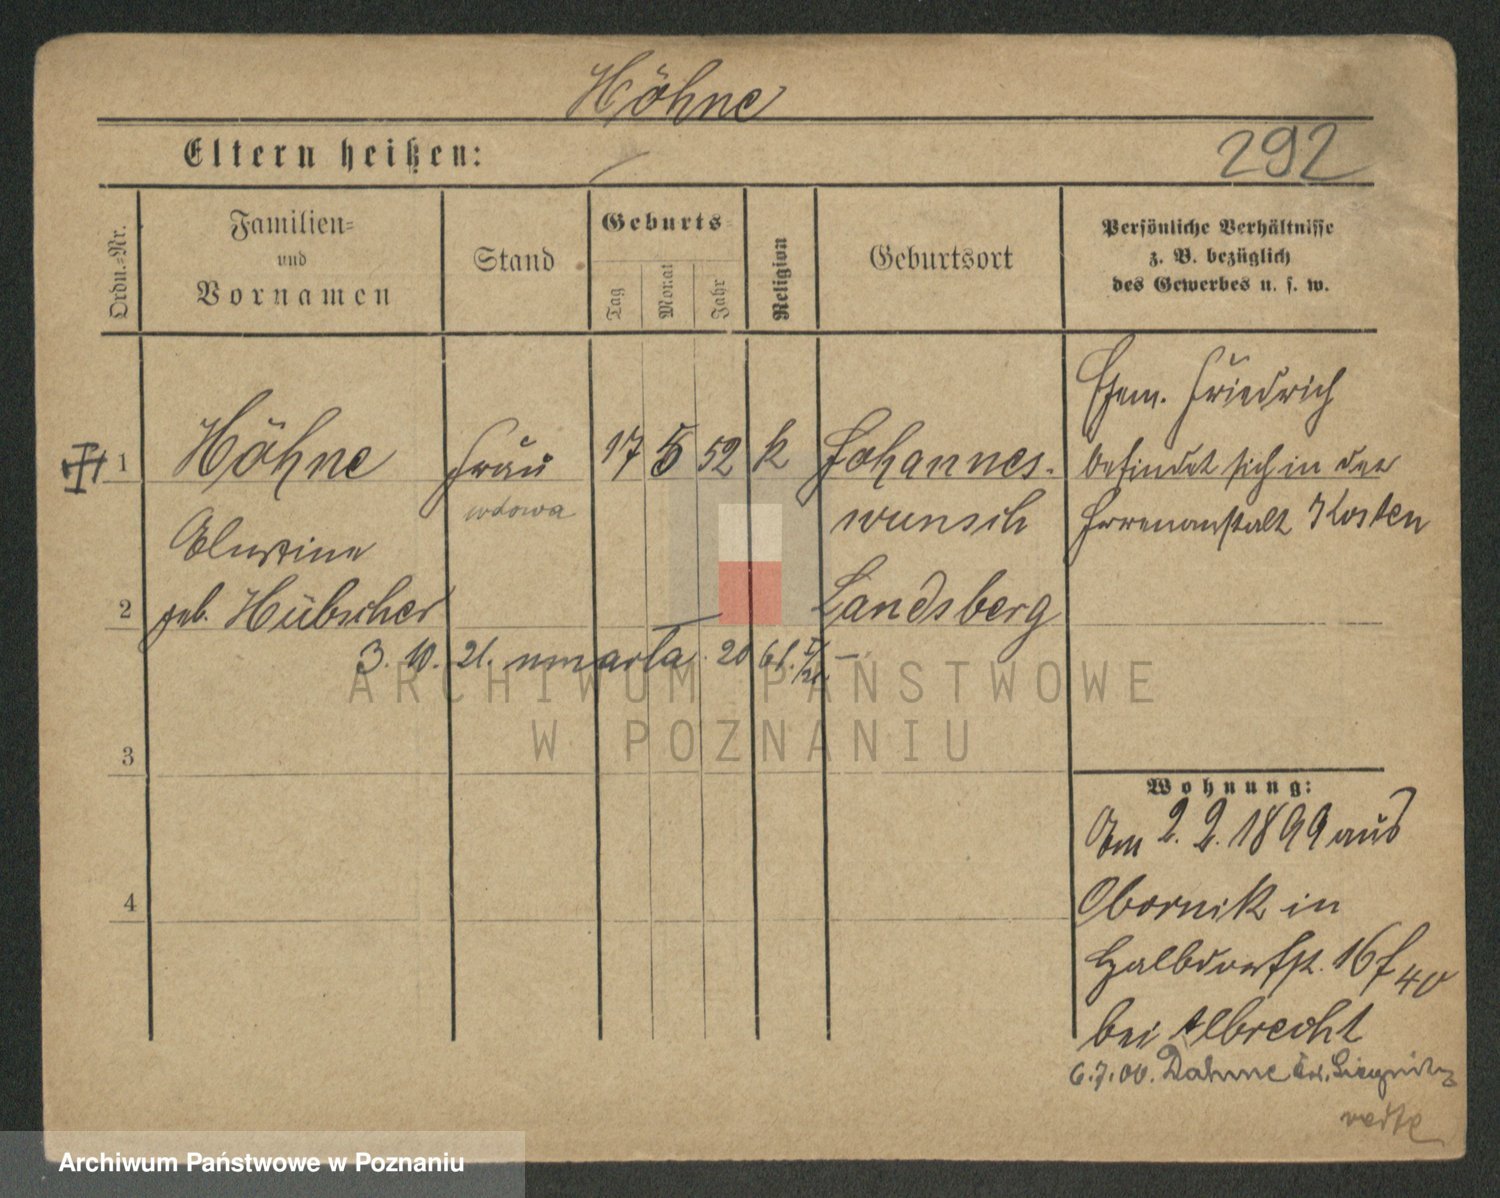 Höhne
Eltern heißen:
292
Ordn.-Nr.
Familien- und Vornamen
Stand
Geburts-
Tag
Monat
Jahr
Religion
Geburtsort
Persönliche Verhältnisse
z. B. bezüglich
des Gewerbes u. s. w.
1 Höhne Frau 17 5 52 k Johannes-
wdowa
wunsch
Alwine
2 geb. Hübscher Landsberg
3. 10. 21. umarła 20
Ehem. Friedrich
befindet sich in der
Irrenanstalt Kosten
3
4
Wohnung:
Am 2. 2. 1899 aus
Obornik in
Halbdorfst. 16 f 40
bei Albrecht
6.7.00. Dahme Liegnitz
ARCHIWUM PAŃSTWOWE
W POZNANIU
Archiwum Państwowe w Poznaniu